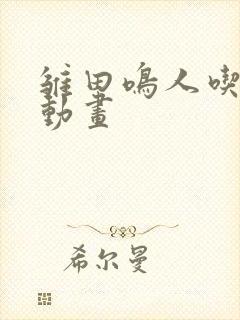 雏田鳴人喫
動畫
希尔曼